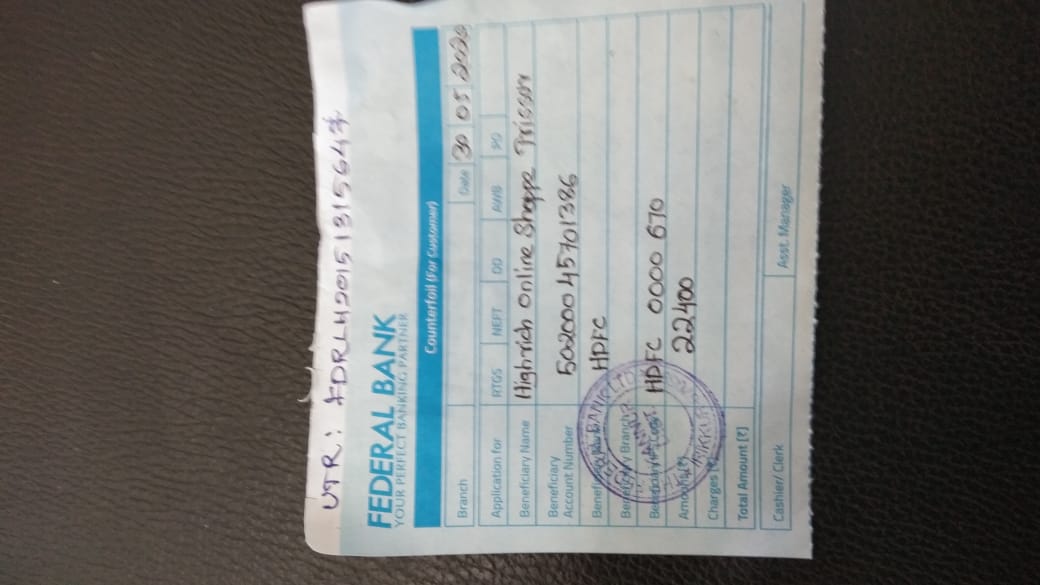 UTR: FDRLH20151315647
FEDERAL BANK
YOUR PERFECT BANKING PARTNER
Counterfoil (For Customer)
Branch Date 30 05 2020
Application for RTGS NEFT DD AWB PO
Beneficiary Name Highrich Online Shoppe Thrissur
Beneficiary
Account Number 50200045701386
HDFC
Beneficiary Branch
HDFC 0000 670
22400
Charges
Total Amount [₹]
Cashier/ Clerk Asst. Manager